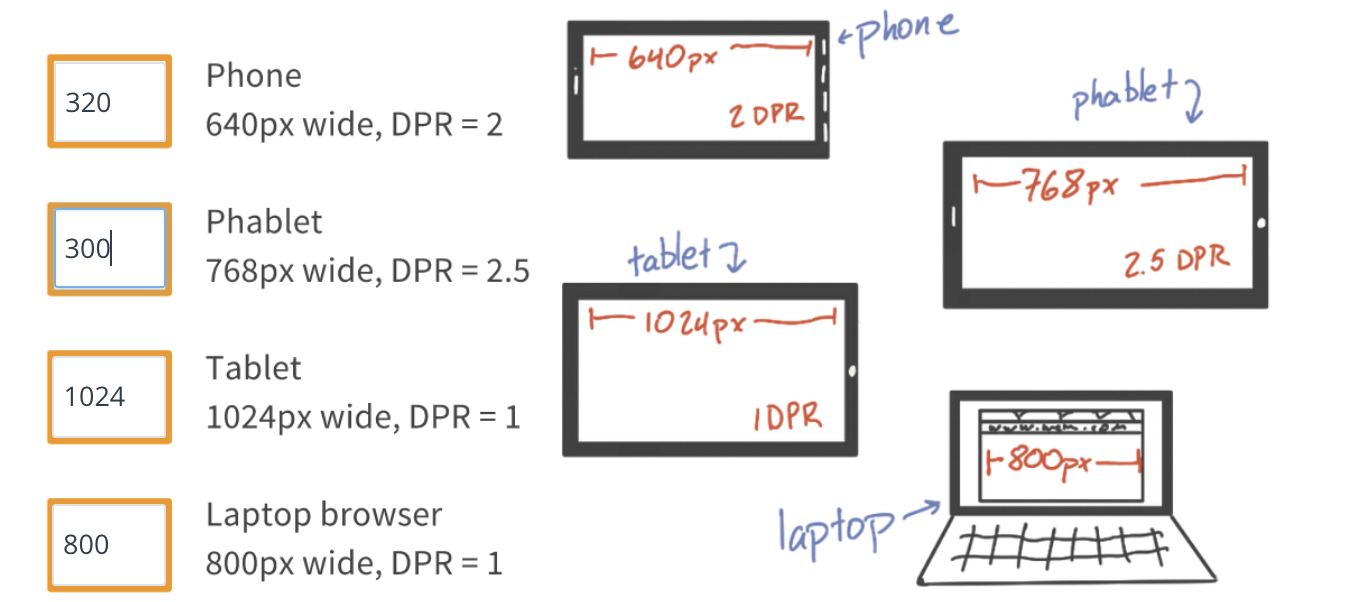 320
Phone
640px wide, DPR = 2
300
Phablet
768px wide, DPR = 2.5
1024
Tablet
1024px wide, DPR = 1
800
Laptop browser
800px wide, DPR = 1
phone
640px
2 DPR
phablet
768px
2.5 DPR
tablet
1024px
1 DPR
800px
laptop